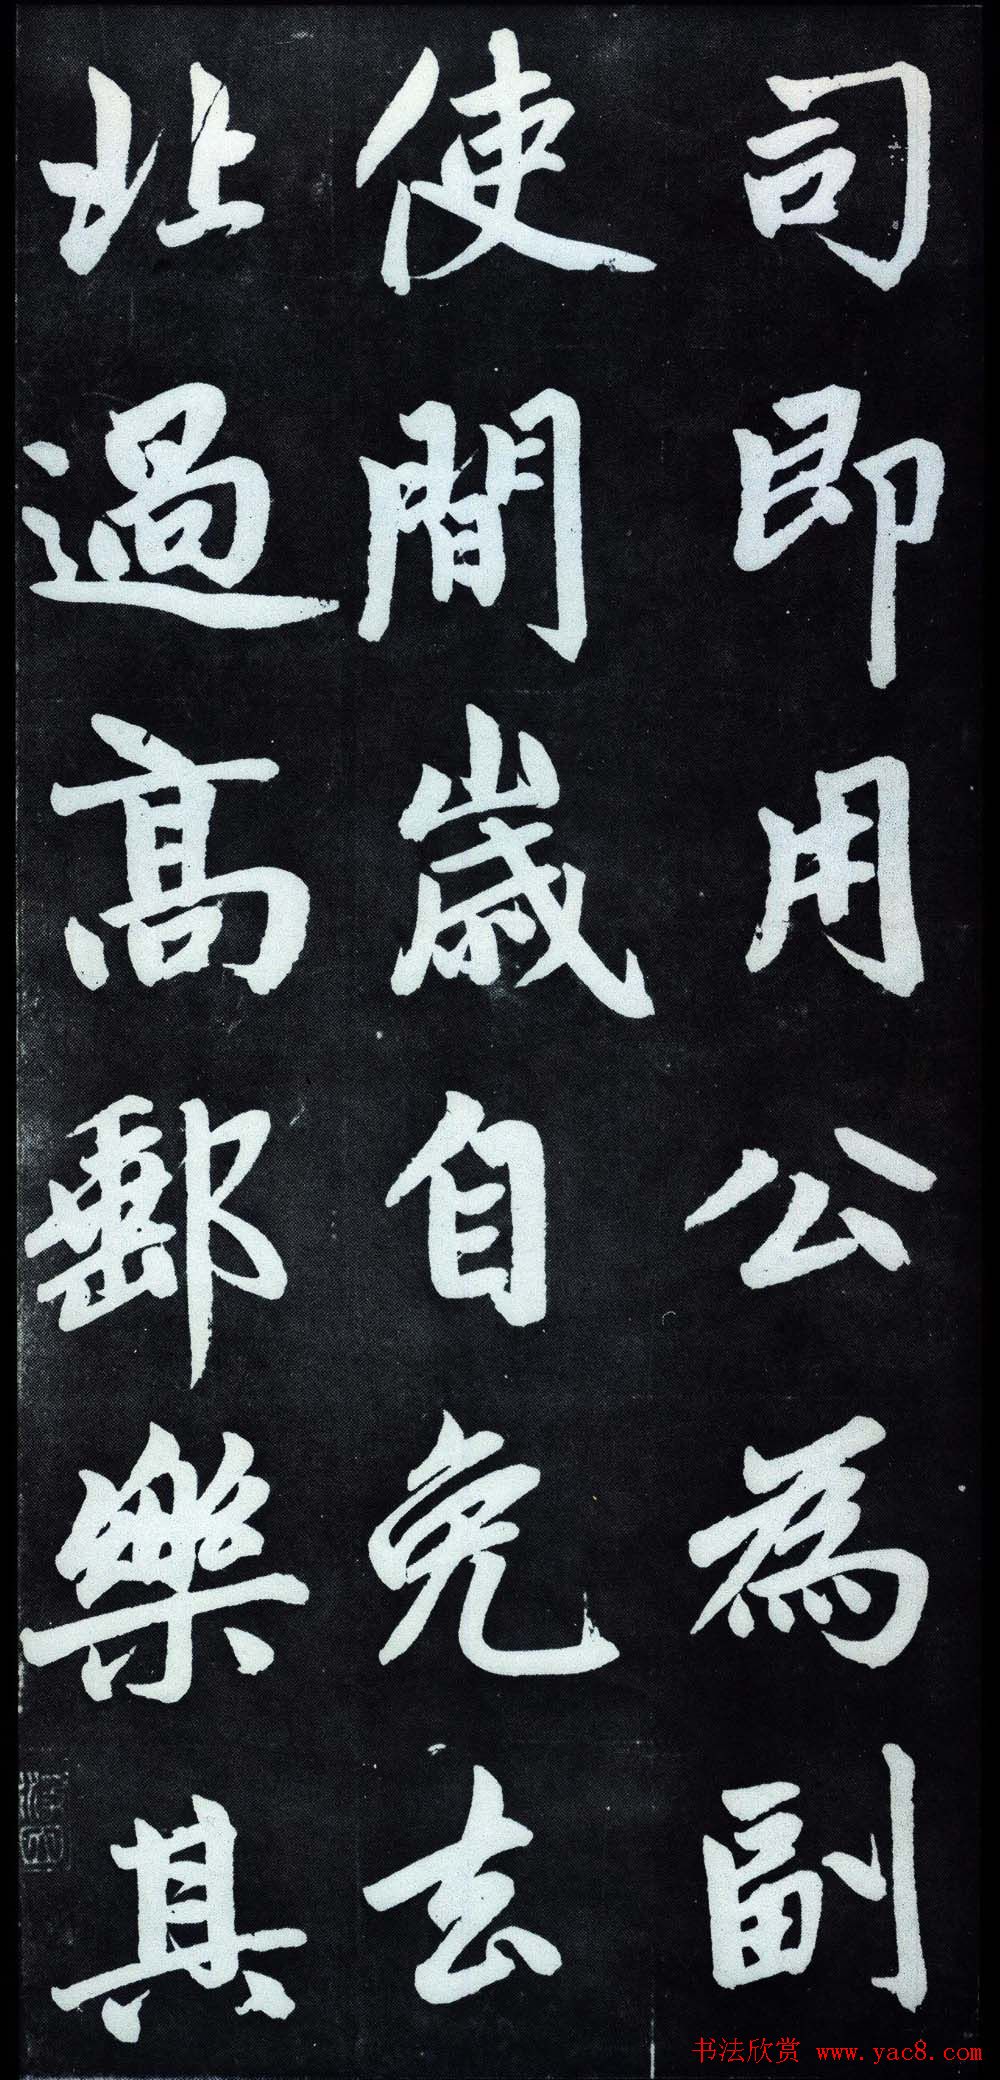 司即用公為副
使間歲自免去
北過高郵樂其
书法欣赏 www.yac8.com